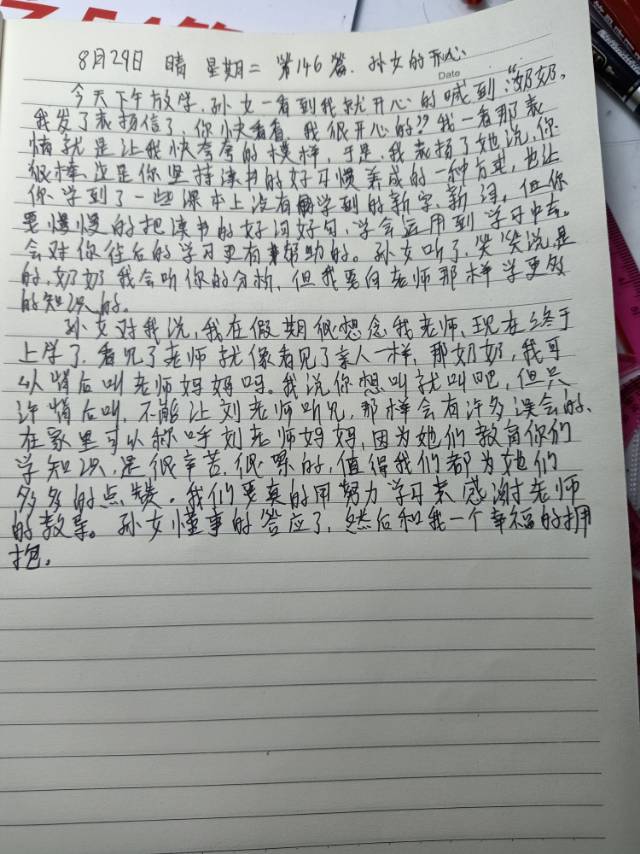 8月29日 晴 星期二 第146篇. 孙女的开心
Date
今天下午放学,孙女一看到我就开心的喊到:"奶奶,
我发了表扬信了,你快看看,我很开心的?"我一看那表
情就是让我快夸夸的模样,于是,我表扬了她说,你
很棒,这是你坚持读书的好习惯养成的一种方式,也让
你学到了一些课本上没有学到的新字、新词,但你
要慢慢的把读书的好词好句,学会运用到学习中去。
会对你往后的学习更有帮助的。孙女听了,笑笑说,是
的,奶奶我会听你的分析,但我要向老师那样学更多
的知识的。
孙女对我说,我在假期很想念我老师,现在终于
上学了,看见了老师就像看见了亲人一样,那奶奶,我可
以背后叫老师妈妈吗。我说你想叫就叫吧,但只
许背后叫,不能让刘老师听见,那样会有许多误会的,
在家里可以称呼刘老师妈妈,因为她们教育你们
学知识,是很辛苦,很累的,值得我们都为她们
多多的点赞。我们要真的用努力学习来感谢老师
的教导。孙女懂事的答应了,然后和我一个幸福的拥
抱。